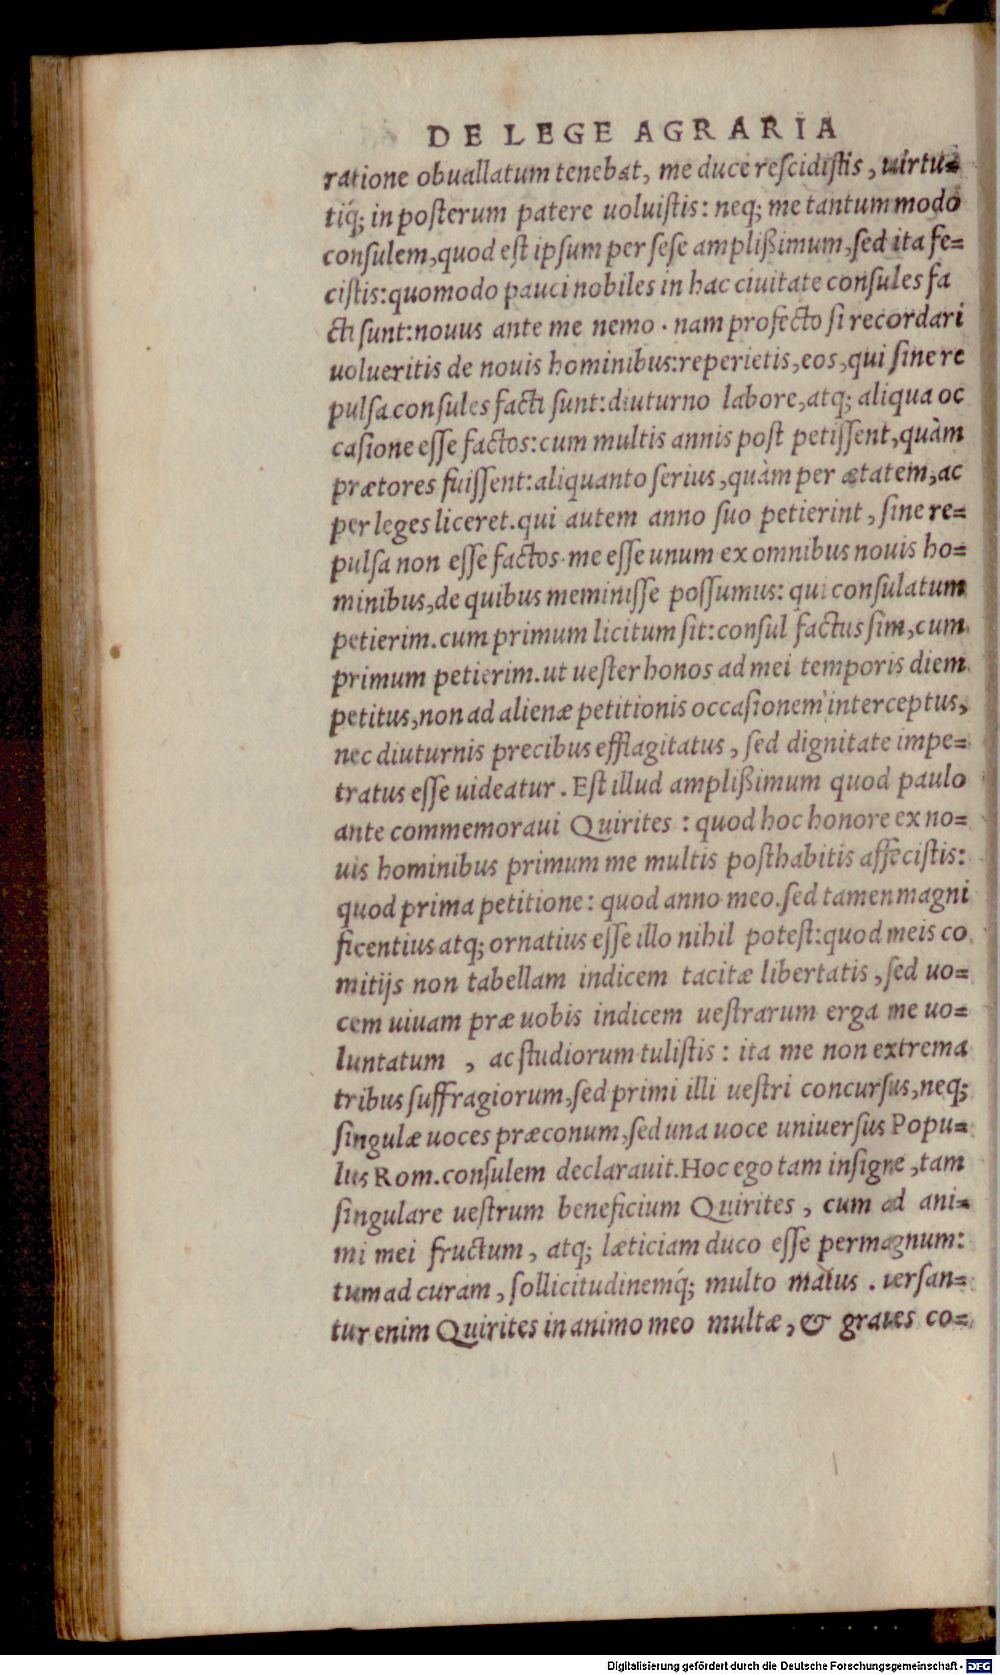 DE LEGE AGRARIA
ratione obuallatum tenebat, me duce rescidistis, uirtu=
tiq́; in posterum patere uoluistis: neq; me tantummodo
consulem, quod est ipsum per sese amplißimum, sed ita fe=
cistis: quomodo pauci nobiles in hac ciuitate consules fa
cti sunt: nouus ante me nemo. nam profecto si recordari
uolueritis de nouis hominibus: reperietis, eos, qui sine re
pulsa consules facti sunt: diuturno labore, atq; aliqua oc
casione esse factos: cum multis annis post petissent, quàm
prætores fuissent: aliquanto serius, quàm per ætatem, ac
per leges liceret. qui autem anno suo petierint, sine re=
pulsa non esse factos. me esse unum ex omnibus nouis ho=
minibus, de quibus meminisse possumus: qui consulatum
petierim. cum primum licitum sit: consul factus sim, cum
primum petierim. ut uester honos ad mei temporis diem
petitus, non ad alienæ petitionis occasionem interceptus,
nec diuturnis precibus efflagitatus, sed dignitate impe=
tratus esse uideatur. Est illud amplißimum quod paulo
ante commemoraui Quirites: quod hoc honore ex no=
uis hominibus primum me multis posthabitis affecistis:
quod prima petitione: quod anno meo. sed tamen magni
ficentius atq; ornatius esse illo nihil potest: quod meis co
mitijs non tabellam indicem tacitæ libertatis, sed uo=
cem uiuam præ uobis indicem uestrarum erga me uo=
luntatum, ac studiorum tulistis: ita me non extrema
tribus suffragiorum, sed primi illi uestri concursus, neq;
singulæ uoces præconum, sed una uoce uniuersus Popu=
lus Rom. consulem declarauit. Hoc ego tam insigne, tam
singulare uestrum beneficium Quirites, cum ad ani=
mi mei fructum, atq; læticiam duco esse permagnum:
tum ad curam, sollicitudinemq́; multo maius. uersan=
tur enim Quirites in animo meo multæ, & graues co=
Digitalisierung gefördert durch die Deutsche Forschungsgemeinschaft - DFG